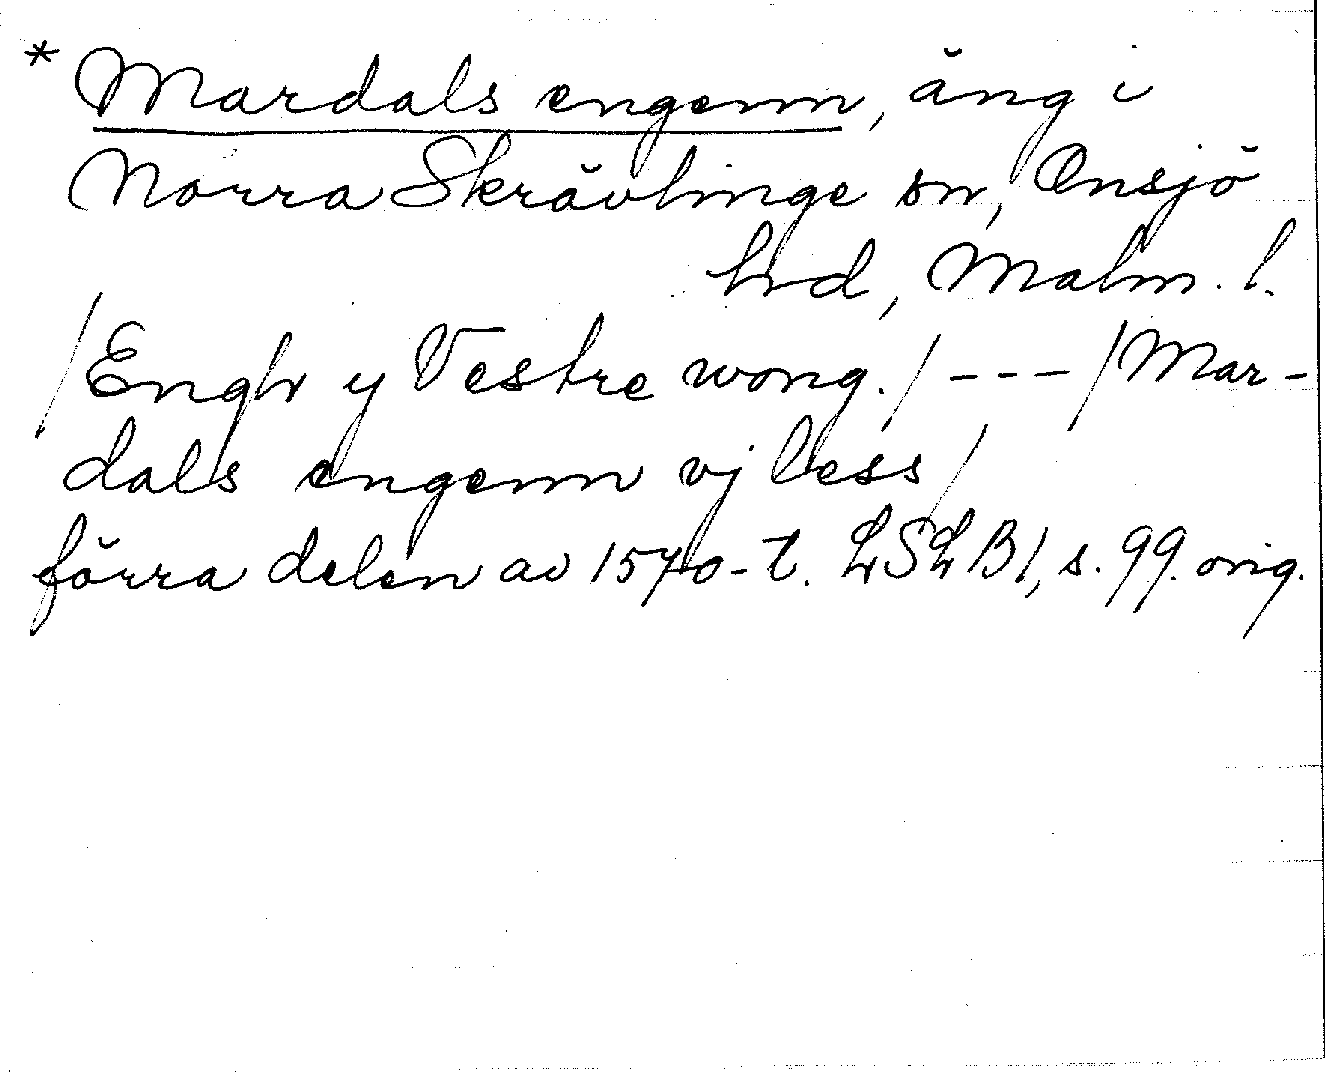 * Mardals engenn, äng i
Norra Skrävlinge sn, Onsjö
hrd, Malm. l.
/Engh y Vestre wong./ - - - /Mar-
dals engenn vj less/
förra delen av 1570-t. LSLB1, s. 99. orig.